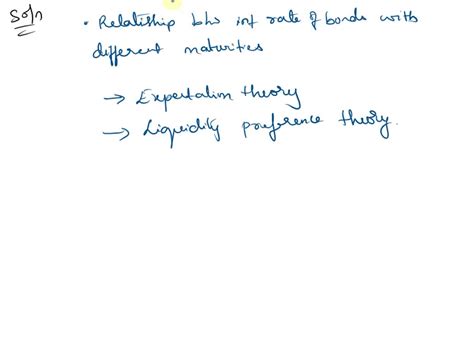 Soln
• Relatiship b/w int rate of bonds with
different maturities
→ Expectation theory
→ Liquidity preference theory.